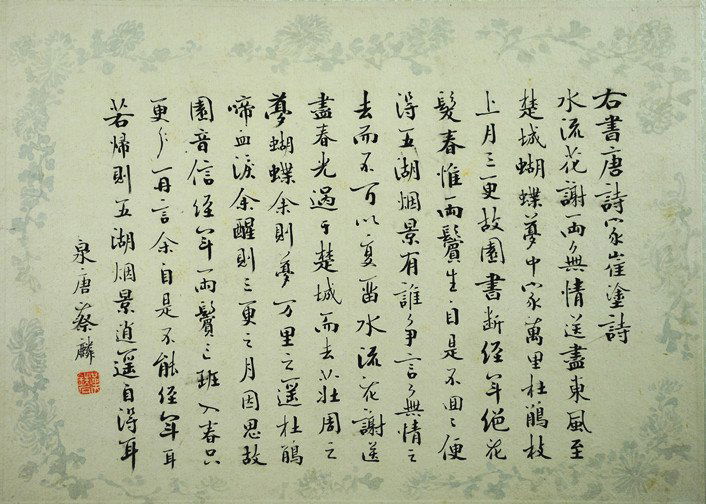 右書唐詩家崔塗詩
水流花謝兩無情送盡東風至
楚城蝴蝶夢中家萬里杜鵑枝
上月三更故園書斷經年絕花
髮春惟兩鬢生自是不回〻便
得五湖烟景有誰爭言無情之
去而不可以复畱水流花謝送
盡春光過于楚城而去莊周之
夢蝴蝶余則夢万里之遥杜鵑
啼血淚余醒則三更之月因思故
園音信經年兩鬢已班入春只
更多再言余自是不能經年耳
若歸則五湖烟景逍遥自得耳
泉唐蔡麟